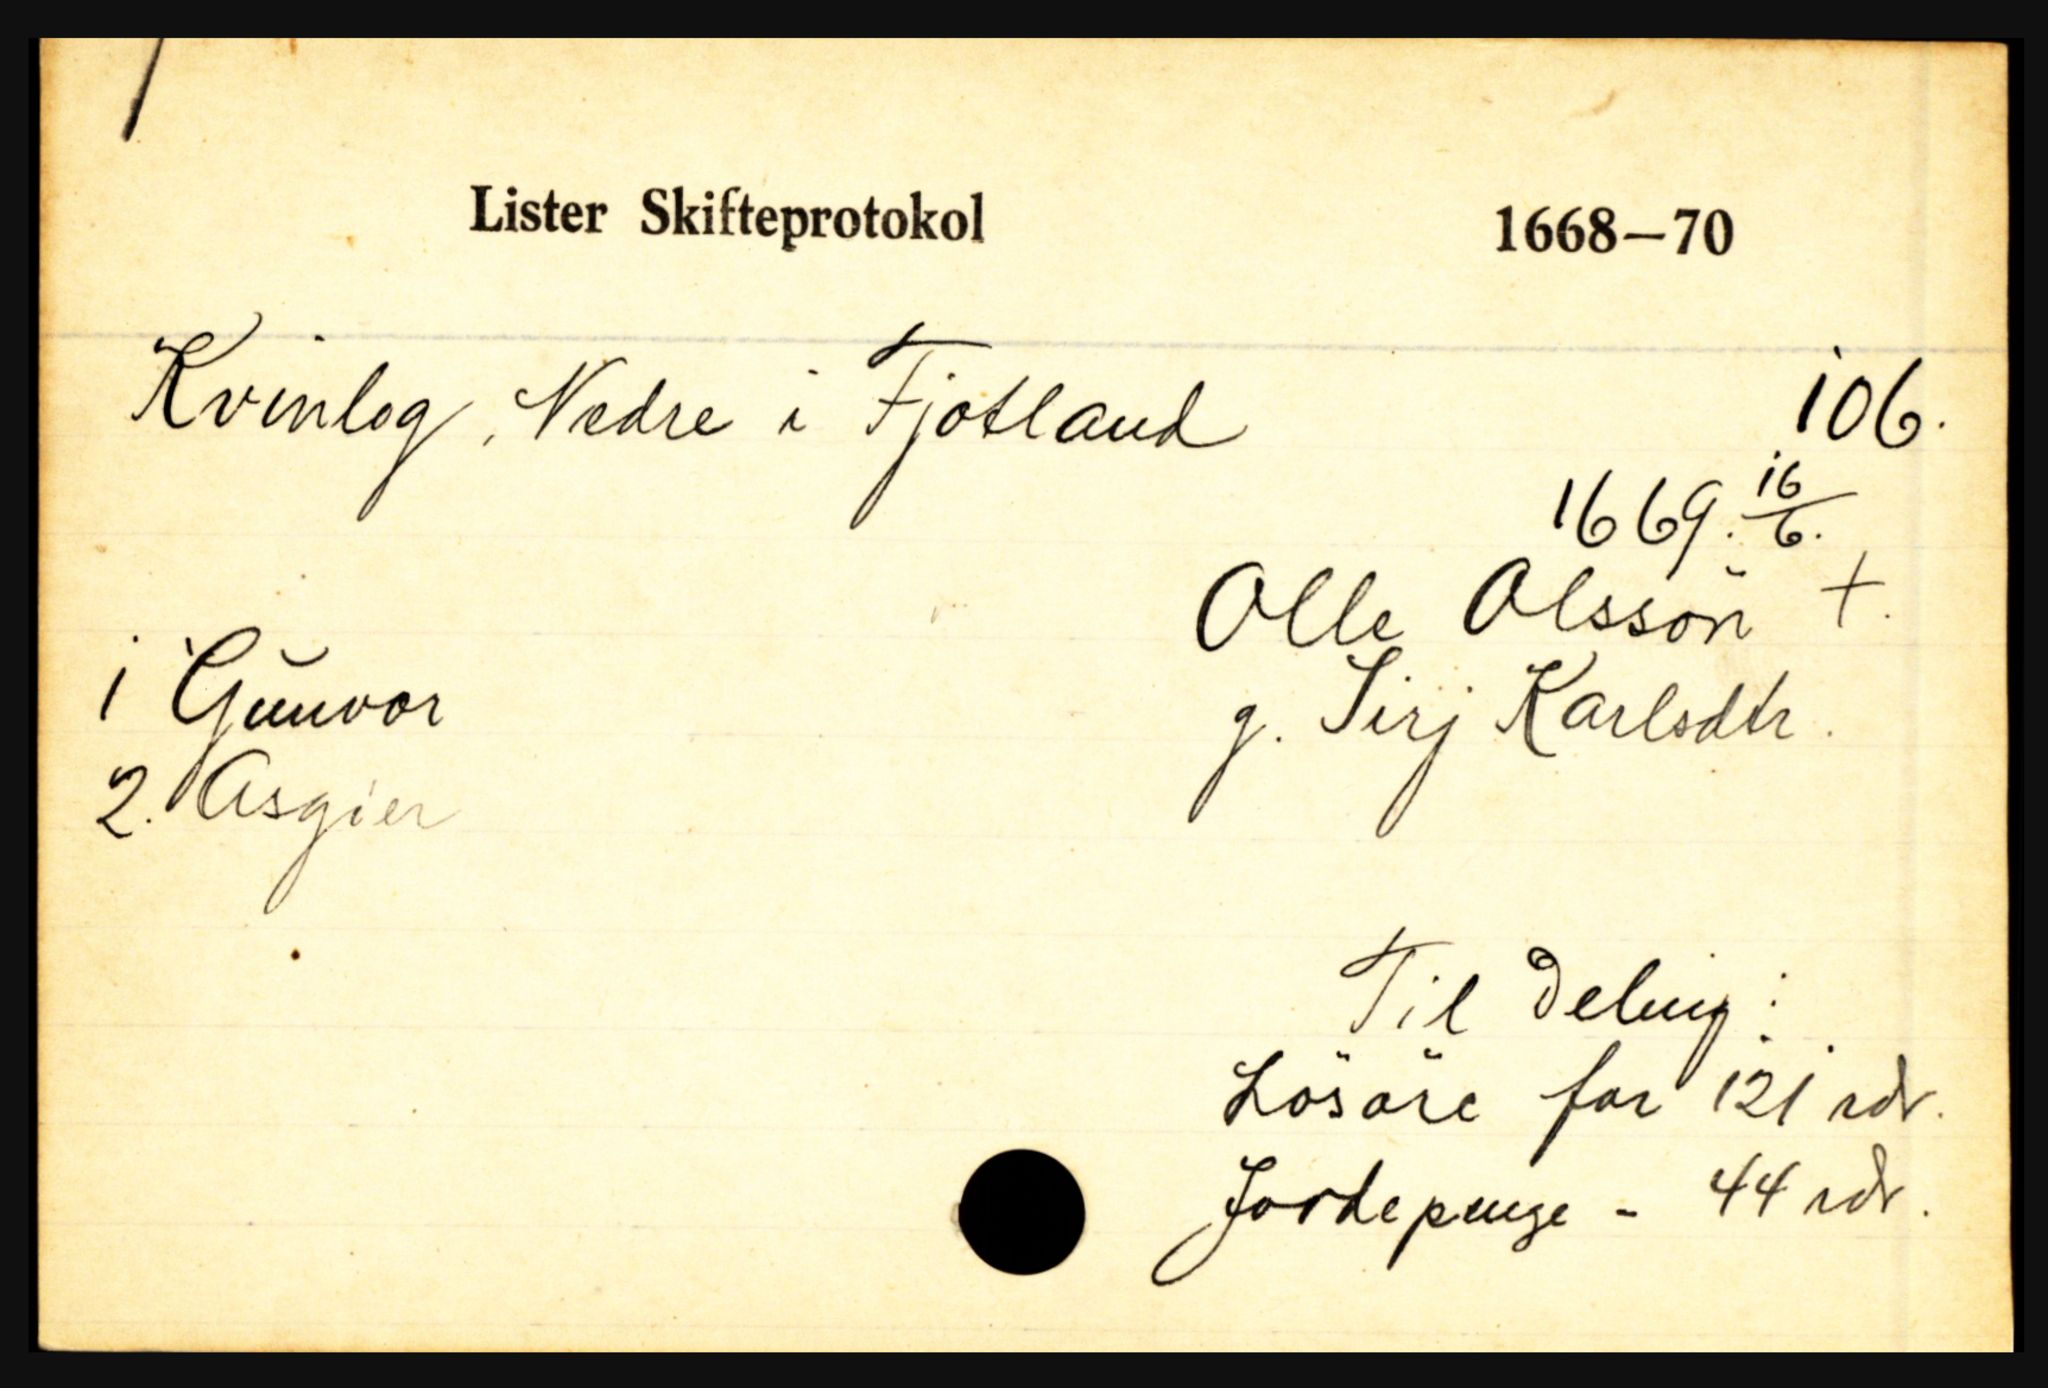 Lister Skifteprotokol 1668–70
Kvinlog, Nedre i Fjotland 106.
1669. 16/6.
Olle Olssön +.
g. Sirj Karlsdtr.
1 Gunvor
2. Asgier
Til Deling:
Lösöre for 121 rdr.
Jordepenge - 44 rdr.